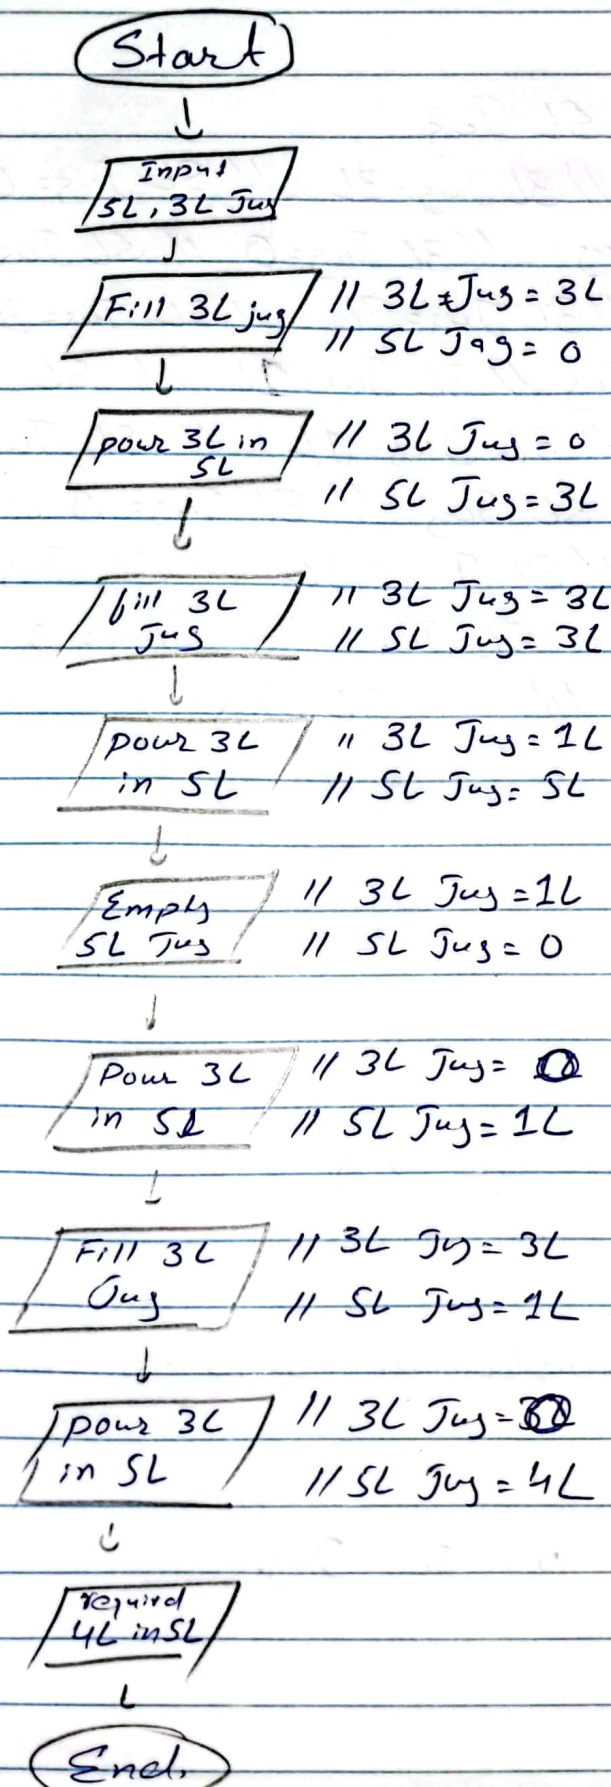 Start
Input
5L, 3L Jug
Fill 3L jug
// 3L Jug = 3L
// 5L Jag = 0
pour 3L in
5L
// 3L Jug = 0
// 5L Jug = 3L
fill 3L
Jug
// 3L Jug = 3L
// 5L Jug = 3L
pour 3L
in 5L
// 3L Jug = 1L
// 5L Jug = 5L
Empty
5L Jug
// 3L Jug = 1L
// 5L Jug = 0
Pour 3L
in 5L
// 3L Jug = 0
// 5L Jug = 1L
Fill 3L
Jug
// 3L Jug = 3L
// 5L Jug = 1L
pour 3L
in 5L
// 3L Jug = 0
// 5L Jug = 4L
required
4L in 5L
End.